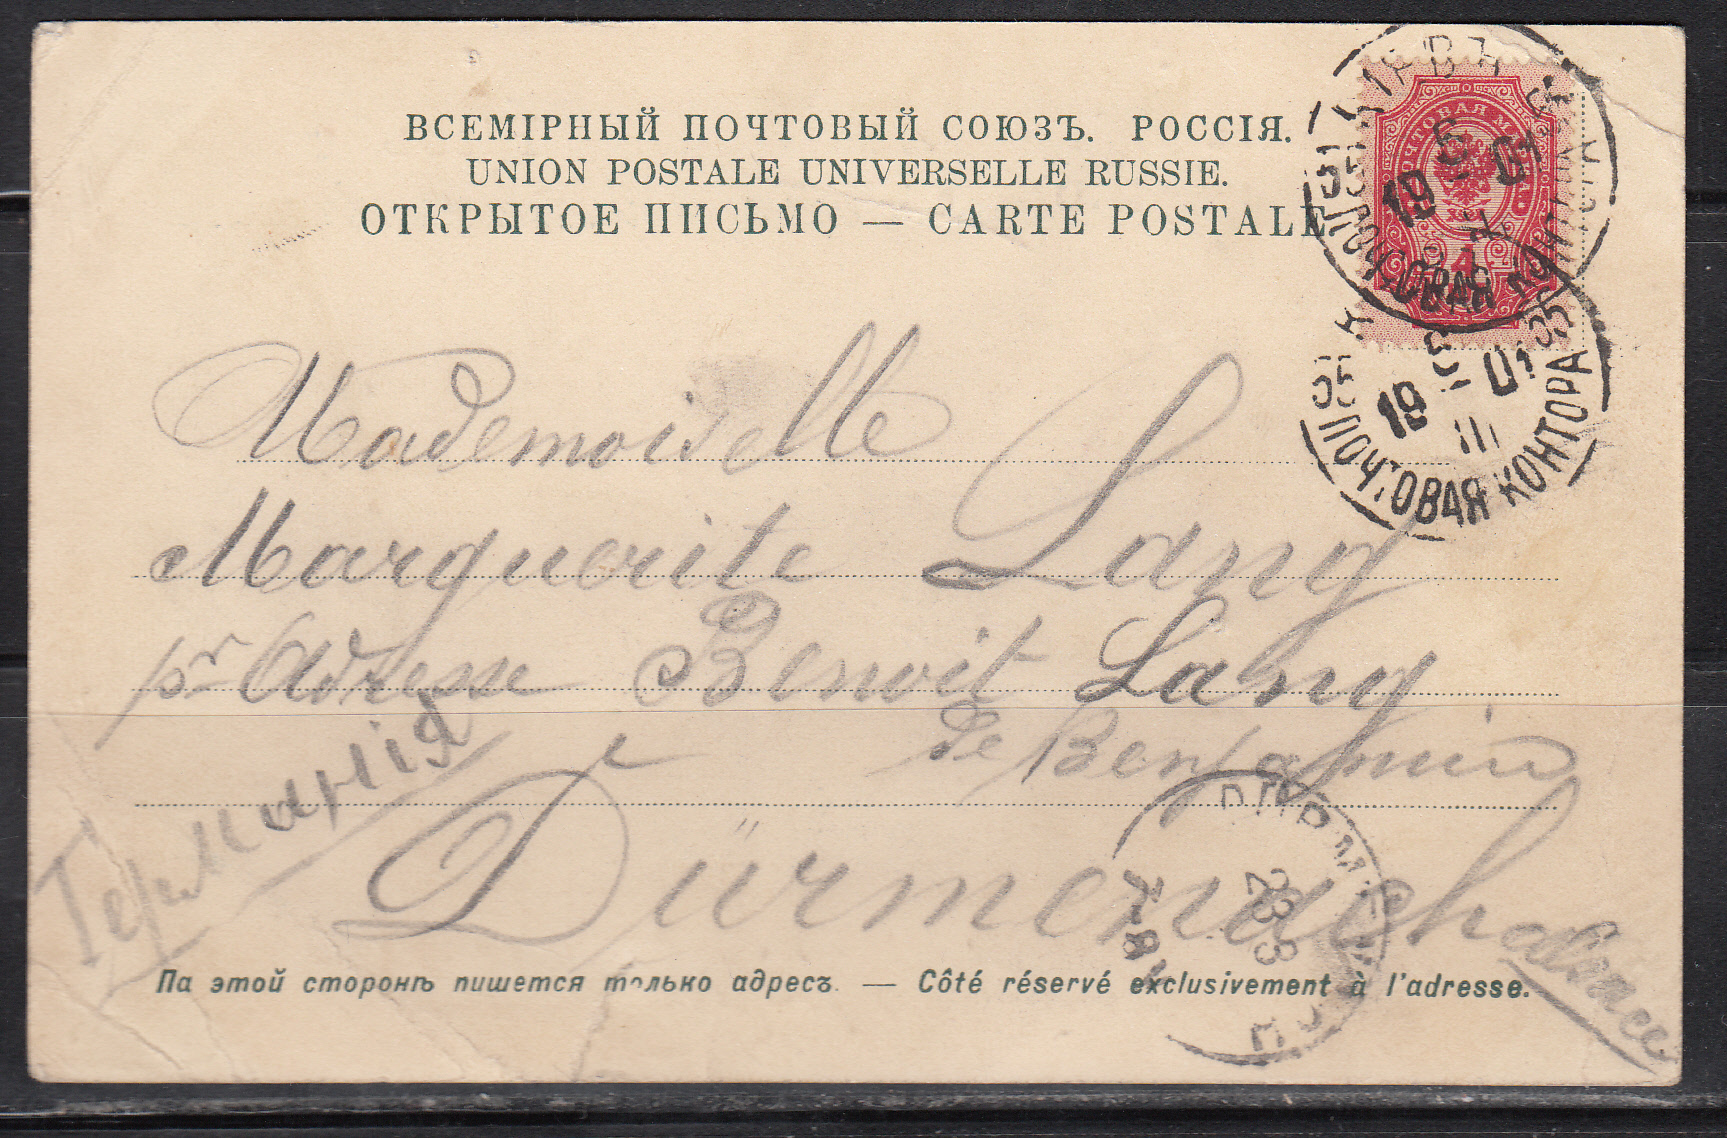 ВСЕМІРНЫЙ ПОЧТОВЫЙ СОЮЗЪ. РОССІЯ.
UNION POSTALE UNIVERSELLE RUSSIE.
ОТКРЫТОЕ ПИСЬМО — CARTE POSTALE
19 01
ПОЧТОВАЯ КОНТОРА
19 01
Mademoiselle
Marguerite Lang
pr Adresse Benoit Lang
de Benjamin
Германія
Dürmenach
alsace
23 3
7-8
На этой сторонѣ пишется только адресъ. — Côté réservé exclusivement à l'adresse.